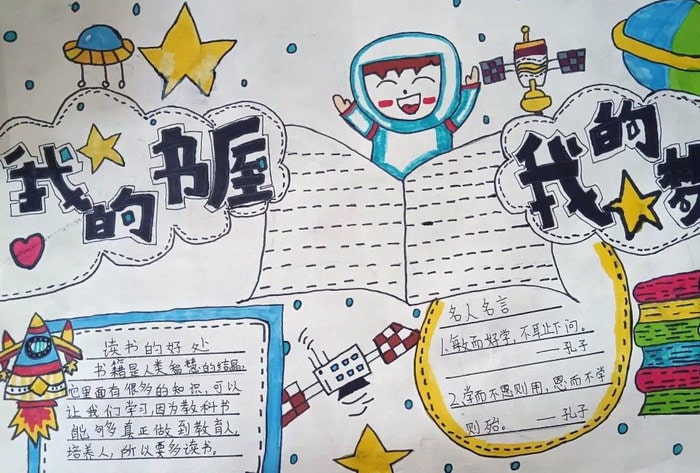 我的书屋
我的梦
读书的好处
书籍是人类智慧的结晶。
它里面有很多的知识，可以
让我们学习，因为教科书
能够真正做到教育人，
培养人，所以要多读书。
名人名言
1.敏而好学，不耻下问。
——孔子
2.学而不思则罔，思而不学
则殆。——孔子